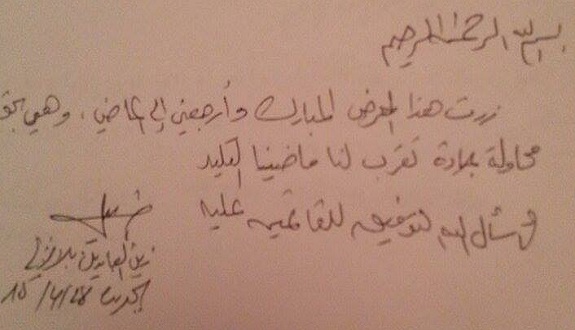 بسم الله الرحمن الرحيم
زرت هذا المعرض المبارك وأرجعني إلى الماضي، وهي بحق
محاولة جادة تقرب لنا ماضينا التليد
نسأل الله التوفيق للقائمين عليه
زين العابدين